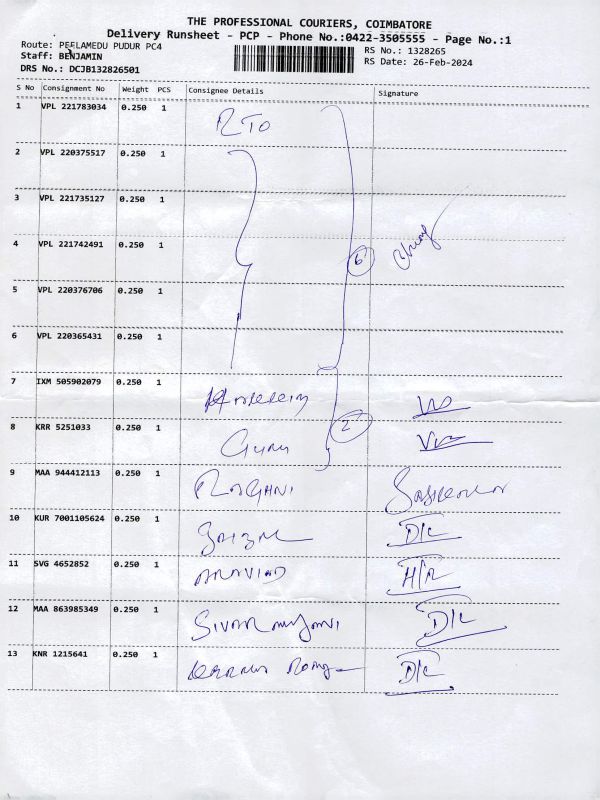 THE PROFESSIONAL COURIERS, COIMBATORE
Delivery Runsheet - PCP - Phone No.:0422-3505555 - Page No.:1
Route: PEELAMEDU PUDUR PC4
Staff: BENJAMIN
DRS No.: DCJB132826501
RS No.: 1328265
RS Date: 26-Feb-2024
S No Consignment No Weight PCS Consignee Details Signature
1 VPL 221783034 0.250 1 RTO
2 VPL 220375517 0.250 1
3 VPL 221735127 0.250 1
4 VPL 221742491 0.250 1 6
5 VPL 220376706 0.250 1
6 VPL 220365431 0.250 1
7 IXM 505902079 0.250 1
8 KRR 5251033 0.250 1 Guru 2
9 MAA 944412113 0.250 1 ROSHNI
10 KUR 7001105624 0.250 1 D/C
11 SVG 4652852 0.250 1 ARAVIND H/R
12 MAA 863985349 0.250 1 D/C
13 KNR 1215641 0.250 1 D/C